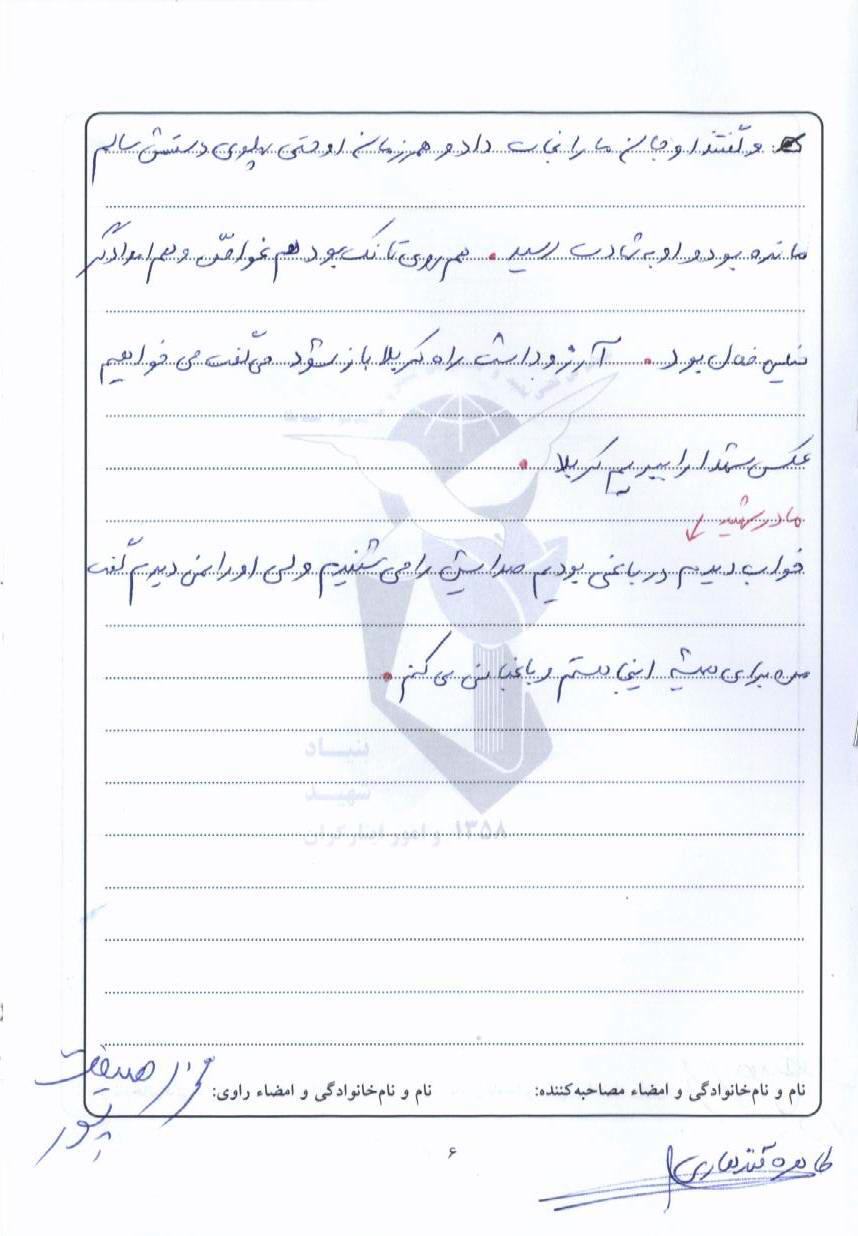 و گفتند او جان ما را نجات داد و همرزمان او حتی پهلوی دستش سالم
مانده بود و او به شهادت رسید. هم روی تانک بود هم غواص و هم امدادگر
خیلی فعال بود. آرزو داشت راه کربلا باز شود می‌گفت می‌خواهیم
عکس شهدا را ببریم کربلا.
مادر شهید
خواب دیدم در باغی بودیم صدایش را می‌شنیدم ولی او را نمی‌دیدم گفت
من برای همیشه اینجا هستم و باغبانی می‌کنم.
بنیاد
شهید
و امور ایثارگران ۱۳۵۸
نام و نام‌خانوادگی و امضاء مصاحبه‌کننده: نام و نام‌خانوادگی و امضاء راوی:
پور
۶
طاهره قندهاری